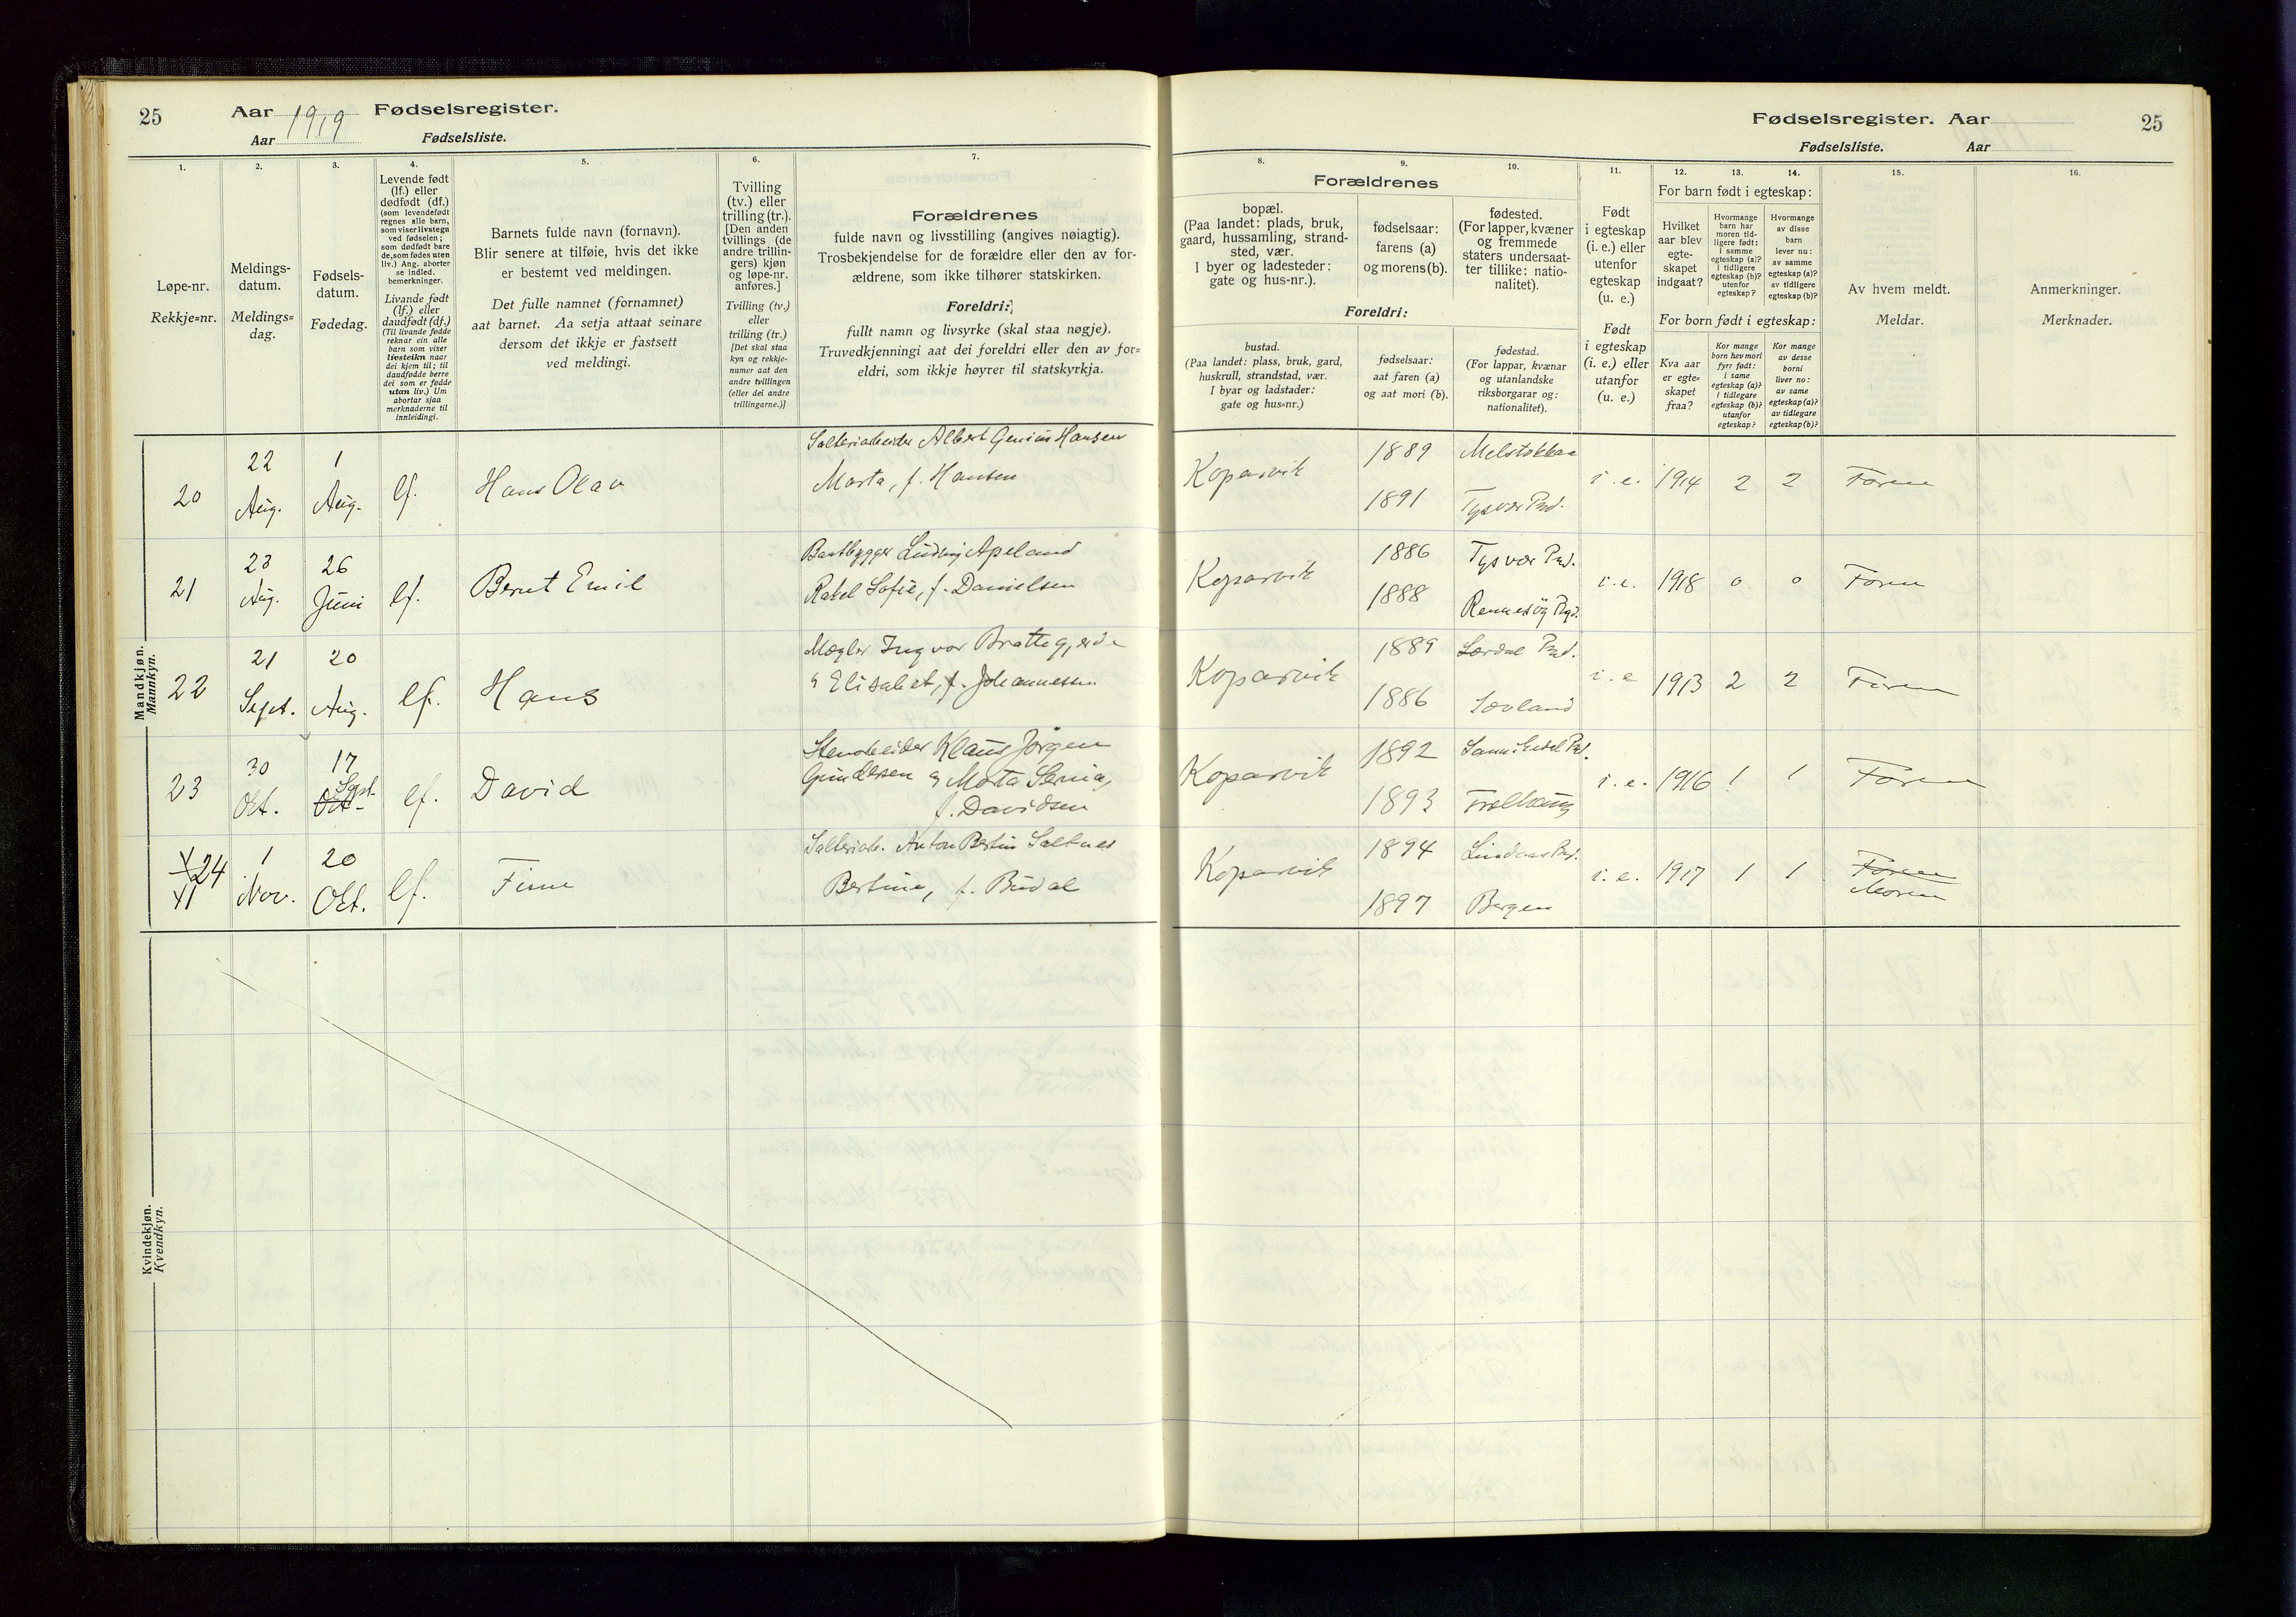 25 Aar 1919 Fødselsregister.
Aar Fødselsliste.
Fødselsregister. Aar 25
Fødselsliste. Aar
1.
Løpe-nr.
Rekkje-nr.
2.
Meldings-
datum.
Meldings=
dag.
3.
Fødsels-
datum.
Fødedag.
4.
Levende født
(lf.) eller
dødfødt (df.)
(som levendefødt
regnes alle barn,
som viser livstegn
ved fødselen;
som dødfødt bare
de, som fødes uten
liv.) Ang. aborter
se indled.
bemerkninger.
Livande født
(lf.) eller
daudfødt (df.)
(Til livande fødde
reknar ein alle
barn som viser
livsteikn naar
dei kjem til; til
daudfødde berre
dei som er fødde
utan liv.) Um
abortar sjaa
merknaderne til
innleidingi.
5.
Barnets fulde navn (fornavn).
Blir senere at tilføie, hvis det ikke
er bestemt ved meldingen.
Det fulle namnet (fornamnet)
aat barnet. Aa setja attaat seinare
dersom det ikkje er fastsett
ved meldingi.
6.
Tvilling
(tv.) eller
trilling (tr.).
[Den anden
tvillings (de
andre trillin-
gers) kjøn
og løpe-nr.
anføres.]
Tvilling (tv.)
eller
trilling (tr.)
[Det skal staa
kyn og rekkje-
numer aat den
andre tvillingen
(eller dei andre
trillingarne.)]
7.
Forældrenes
fulde navn og livsstilling (angives nøiagtig).
Trosbekjendelse for de forældre eller den av for-
ældrene, som ikke tilhører statskirken.
Foreldri:
fullt namn og livsyrke (skal staa nøgje).
Truvedkjenningi aat dei foreldri eller den av for=
eldri, som ikkje høyrer til statskyrkja.
Forældrenes
8.
bopæl.
(Paa landet: plads, bruk,
gaard, hussamling, strand-
sted, vær.
I byer og ladesteder:
gate og hus-nr.).
9.
fødselsaar:
farens (a)
og morens (b).
10.
fødested.
(For lapper, kvæner
og fremmede
staters undersaat-
ter tillike: natio-
nalitet).
Foreldri:
bustad.
(Paa landet: plass, bruk, gard,
huskrull, strandstad, vær.
I byar og ladstader:
gate og hus=nr.)
fødselsaar:
aat faren (a)
og aat mori (b).
fødestad.
(For lappar, kvænar
og utanlandske
riksborgarar og:
nationalitet).
11.
Født
i egteskap
(i. e.) eller
utenfor
egteskap
(u. e.)
Født
i egteskap
(i. e.) eller
utanfor
(u. e.)
12. 13. 14.
For barn født i egteskap:
Hvilket
aar blev
egte-
skapet
indgaat?
Hvormange
barn har
moren tid-
ligere født:
i samme
egteskap (a)?
i tidligere
egteskap (b)?
utenfor
egteskap?
Hvormange
av disse
barn
lever nu:
av samme
egteskap (a)?
av tidligere
egteskap (b)?
For born født i egteskap:
Kva aar
er egte=
skapet
fraa?
Kor mange
born hev mori
fyrr født:
i same
egteskap (a)?
i tidlegare
egteskap (b)?
utanfor
egteskap?
Kor mange
av desse
borni
liver no:
av same
egteskap (a)?
av tidlegare
egteskap (b)?
15.
Av hvem meldt.
Meldar.
16.
Anmerkninger.
Merknader.
Mandkjøn.
Mannkyn.
20 22 Aug. 1 Aug. lf. Hans Olav
Salteriarbeider Albert Genius Hansen
Marta, f. Hansen
Kopervik 1889 Melstokke
1891 Tysvær Pmd.
i. e. 1914 2 2 Faren
21 23 Aug. 26 Juni lf. Bernt Emil
Baatbygger Ludvig Apeland
Rakel Sofie, f. Danielsen
Kopervik 1886 Tysvær Pmd.
1888 Rennesöy
i. e. 1918 0 0 Faren
22 21 Sept. 20 Aug. lf. Hans
Mægler Ingvar Brattegjerde
& Elisabet, f. Johannessen
Kopervik 1889 Lærdal Pmd.
1886 Sævland
i. e 1913 2 2 Faren
23 30 Okt. 17 Sept. Okt. lf. David
Stenarbeider Klaus Jörgen
Gundersen & Marta Serina,
f. Davidsen
Kopervik 1892
1893
i. e. 1916 1 1 Faren
24 1 Nov. 20 Okt. lf. Finn
Salteriarb. Anton Bertin Saltnes
Bertine, f. Budal
Kopervik 1894 Lindaas Pmd.
1897 Bergen
i. e. 1917 1 1 Faren
Moren
Kvindekjøn.
Kvendkyn.